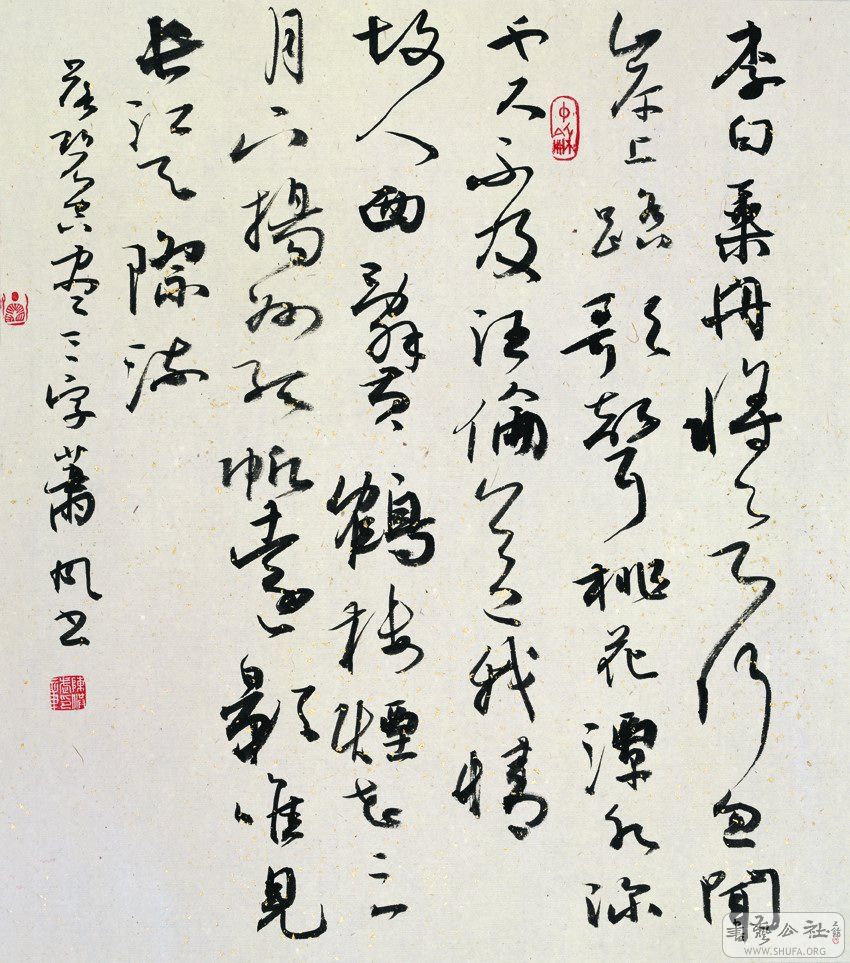 李白乘舟將欲行忽聞
岸上踏歌聲桃花潭水深
千尺不及汪倫送我情
故人西辭黃鶴樓煙花三
月下揚州孤帆遠影唯見
長江天際流
落碧空盡三字蕭風書
書藝公社
WWW.SHUFA.ORG